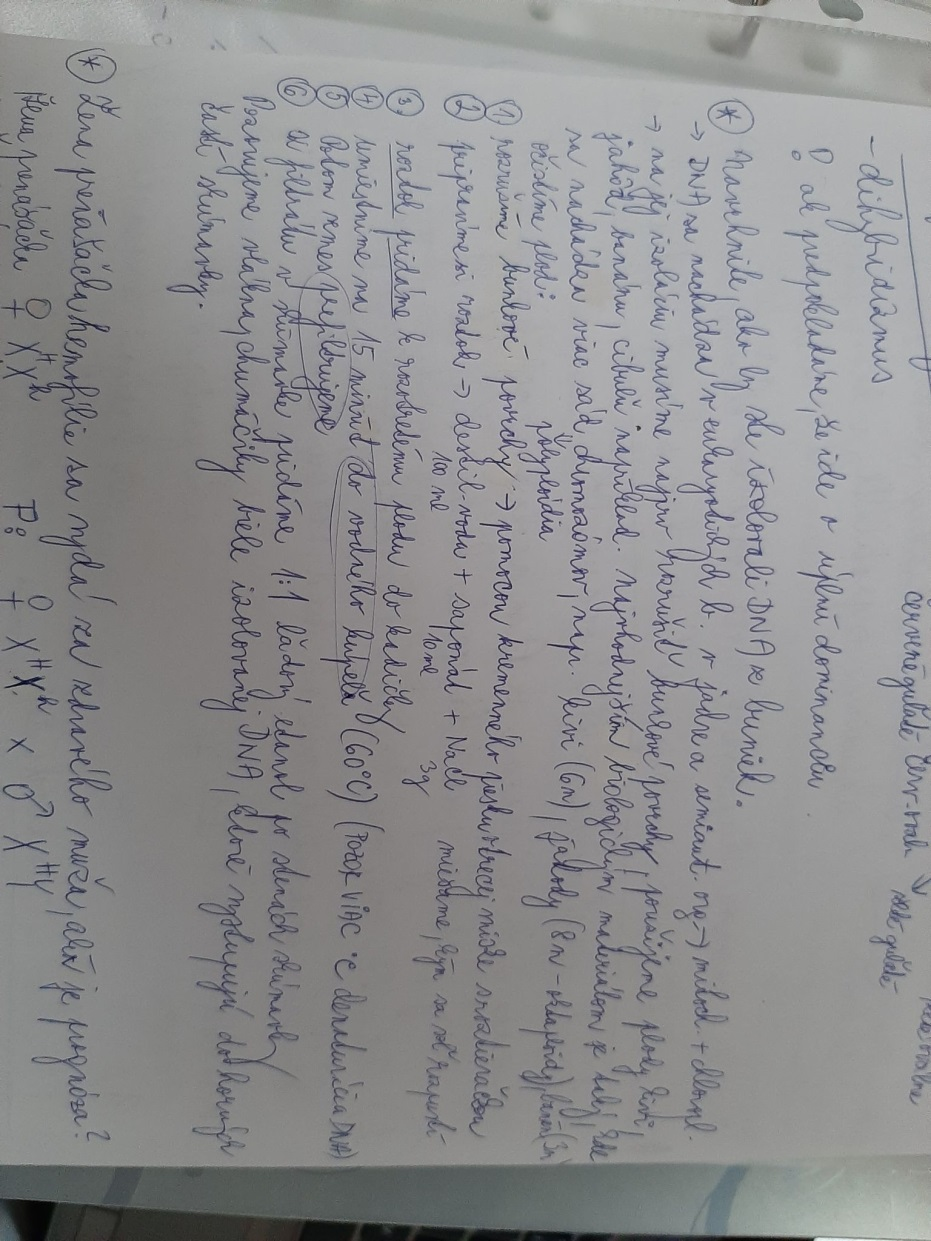 červené guľaté
- dihybridizmus
? ak predpokladáme, že ide o úplnú dominanciu
* Navrhnite, ako by ste izolovali DNA z buniek.
→ DNA sa nachádza v eukaryotických b. v jadre a semiaut. org → mitoch. + chloropl.
→ na jej izoláciu musíme najprv narušiť bunkové povrchy, použijeme plody kivi,
jahôd, banánu, cibuľu napríklad. Najvhodnejším biologickým materiálom je taký, kde
sa nachádza viac sád chromozómov, napr. kivi (6n), jahody (8n - oktaploidy), banán (3n)
očistíme plod: polyploidia
① rozrušíme bunkové povrchy → pomocou kremenného piesku v trecej miske s roztieračkou
② pripravíme si roztok → destil. vodu + saponát + NaCl miešame, kým sa soľ rozpustí
100 ml 10 ml 3g
③ roztok pridáme k rozotretému plodu do kadičky
④ umiestnime na 15 minút do vodného kúpeľa (60°C) (POZOR VIAC °C denaturácia DNA)
⑤ potom zmes prefiltrujeme
⑥ k filtrátu v skúmavke pridáme 1:1 ľadový etanol po stenách skúmavky
Pozorujeme vlákna, chumáčiky biele izolovanej DNA, ktoré vystupujú do horných
častí skúmavky.
* Žena prenášačka hemofílie sa vydá za zdravého muža, aká je prognóza?
žena prenášačka ♀ XᴴXʰ P: ♀ XᴴXʰ x ♂ XᴴY